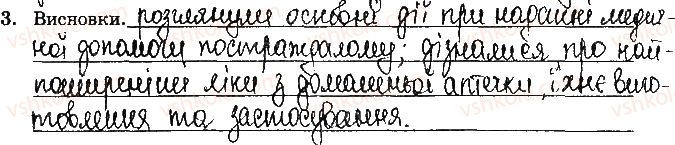 3. Висновки. розглянули основні дії при наданні медич-
ної допомоги постраждалому; дізналися про най-
поширеніші ліки з домашньої аптечки, їхнє виго-
товлення та застосування.